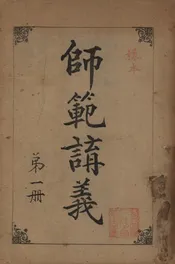 樣本
師範講義
第一册